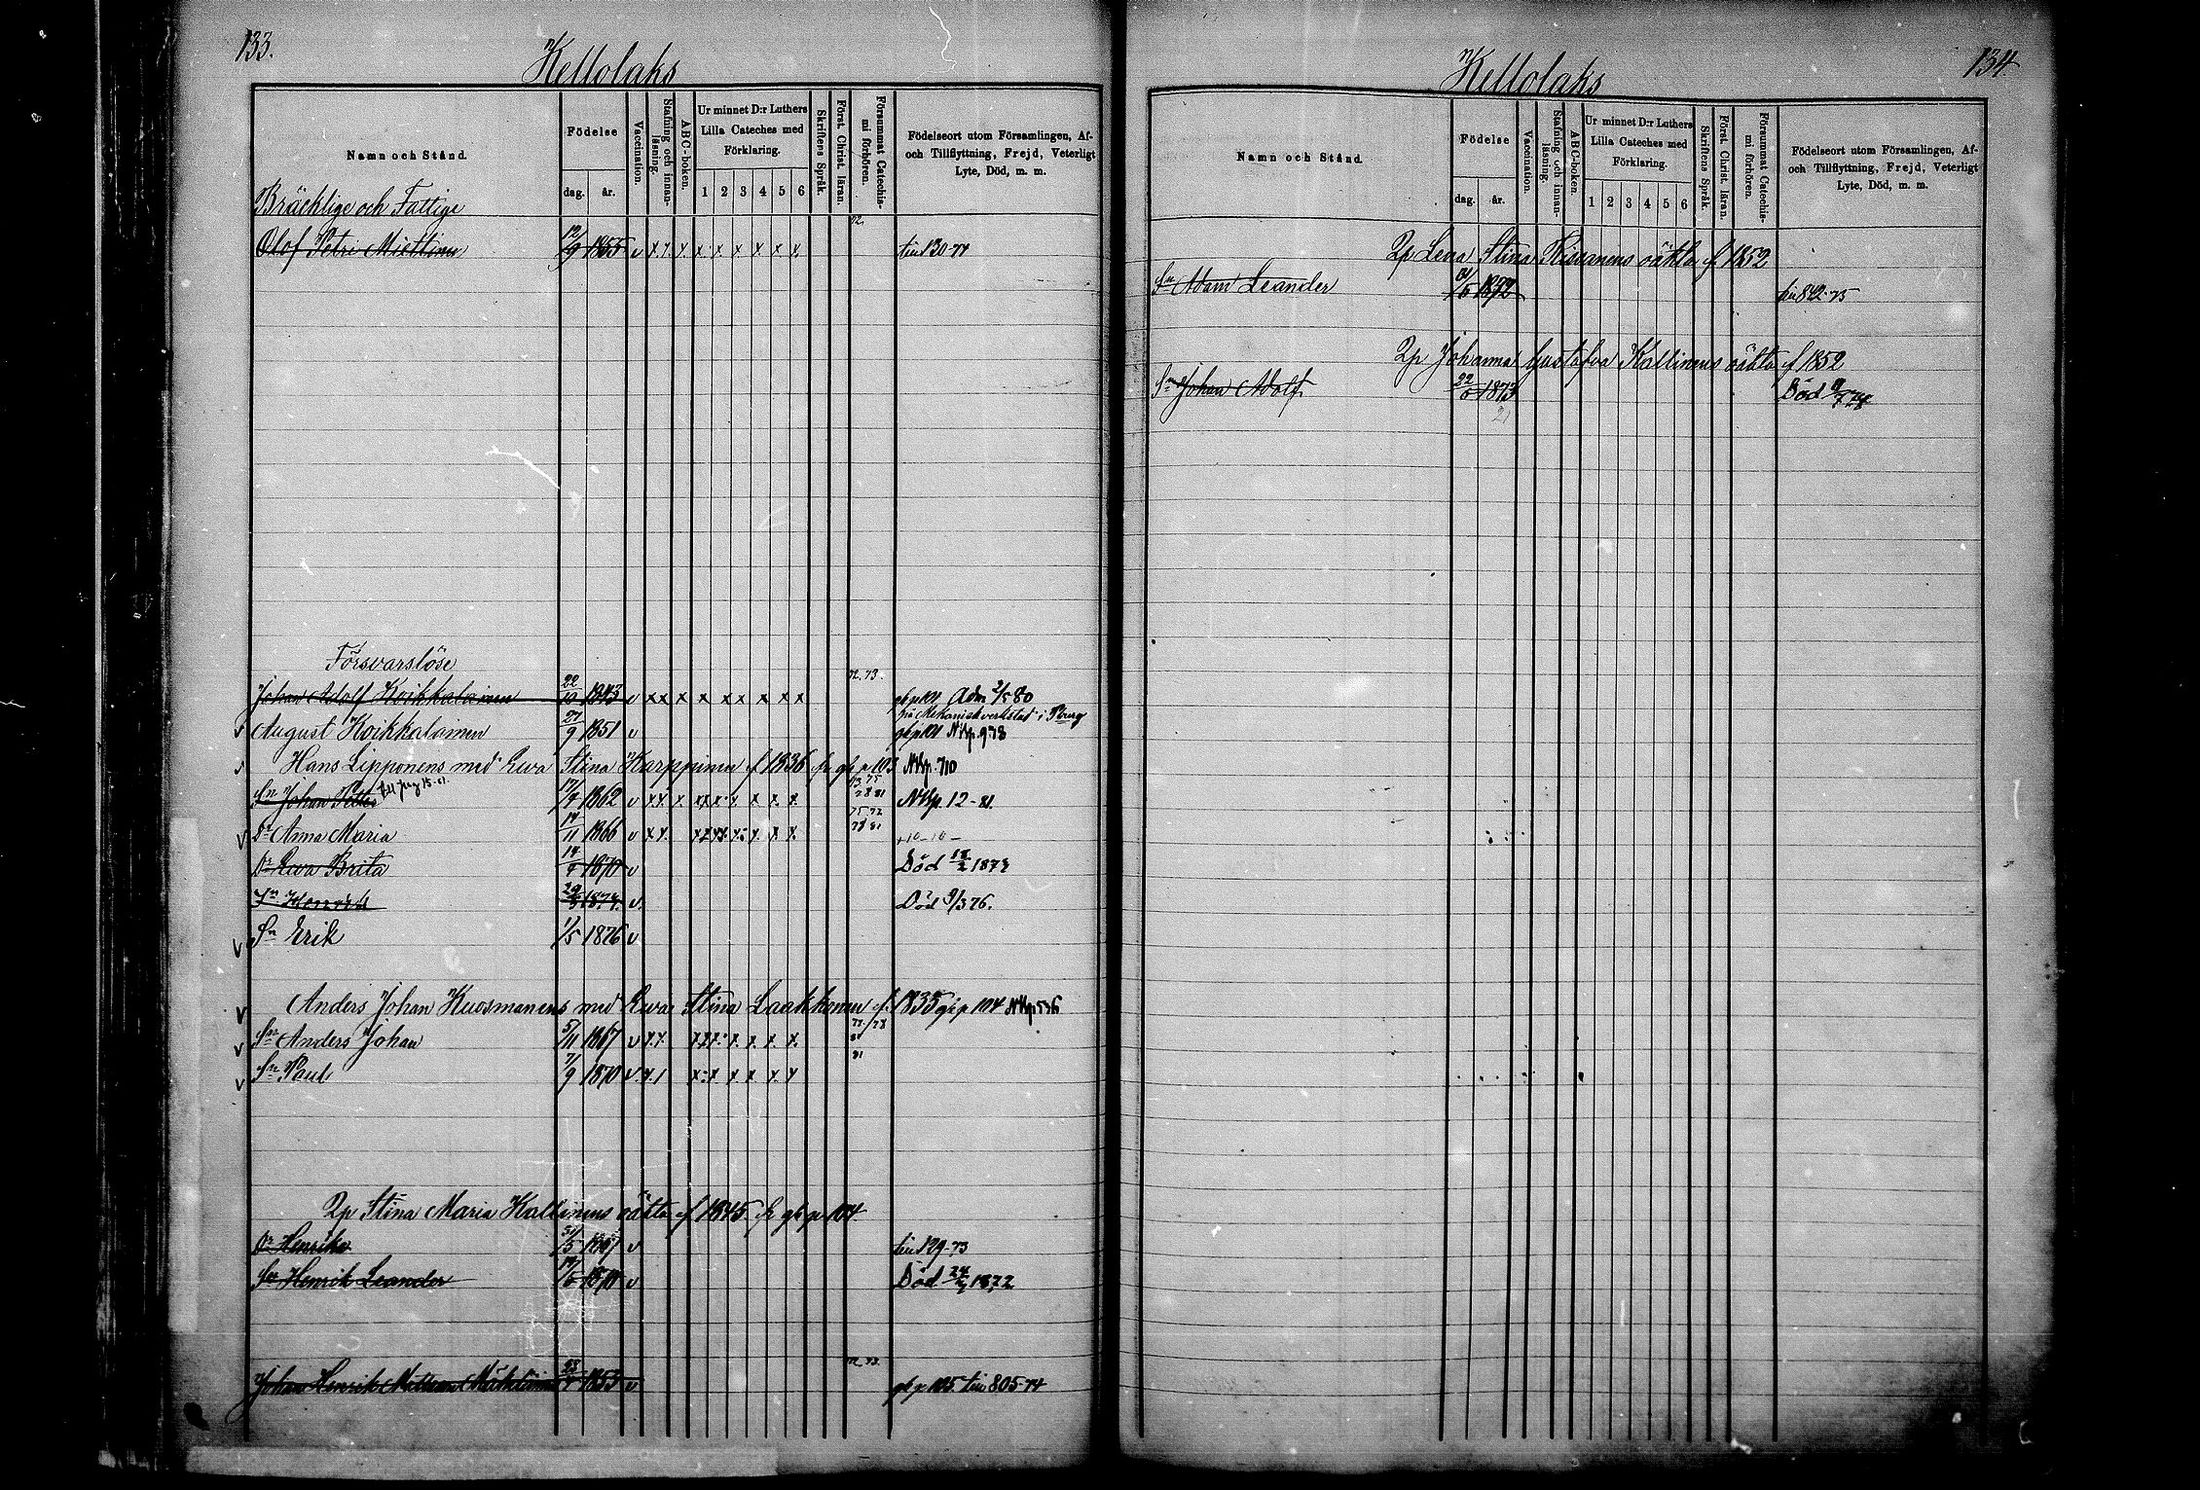 133.
Kellolaks
Namn och Stånd.
Födelse
dag. år.
Vaccination.
Stafning och innanläsning.
ABC-boken.
Ur minnet D:r Luthers
Lilla Cateches med
Förklaring.
1 2 3 4 5 6
Skriftens Språk.
Först. Christ. läran.
Försummat Catechismi förhören.
Födelseort utom Församlingen, Af-
och Tillflyttning, Frejd, Veterligt
Lyte, Död, m. m.
Bräcklige och Fattige
72.
Olof Petri Miettinen 12/9 1855 v x x x x x x x x x 130-77
Försvarslöse
72. 73.
Johan Adolf Koikkalainen 22/10 1843 v x x x x x x x x x Adm 2/5 80
Mekanisk verkstad i
August Koikkalainen 27/9 1851 v Nkp. 978
Hans Lipponens med Ewa Stina Karppinen f 1836 p 103 Nkp. 710
Sn Johan Petter 17/7 1862 v x x x x x x x x x Nkp. 12-81
Dr Anna Maria 14/11 1866 v x x x x x x x x
Dr Ewa Brita 1870 v Död 1873
Sn 1873 v Död 9/3 76.
Sn Erik 1/5 1876 v
Anders Johan Kuosmanens med Ewa Stina Laakkonen f. 1835 p 104 Nkp 536
Sn Anders Johan 5/11 1867 v x x x x x x x x
81
Sn Paul 7/9 1870 v x 1 x x x x x x
Qp Stina Maria Kallinens oäkta f 1845 p 104.
Dr Henrika 31/5 1867 v 129-73
Sn Henrik Leander 1870 v Död 1872
72. 73.
Johan Henrik 1853 v p 105. 805-74
134.
Kellolaks
Namn och Stånd.
Födelse
dag. år.
Vaccination.
Stafning och innanläsning.
ABC-boken.
Ur minnet D:r Luthers
Lilla Cateches med
Förklaring.
1 2 3 4 5 6
Skriftens Språk.
Först. Christ. läran.
Försummat Catechismi förhören.
Födelseort utom Församlingen, Af-
och Tillflyttning, Frejd, Veterligt
Lyte, Död, m. m.
Qp Lena Stina Risanens oäkta f 1852
Sn Adam Leander 1872 842-75
Qp Johanna Gustafva Kallinens oäkta f 1852
Sn Johan Adolf 1873 Död